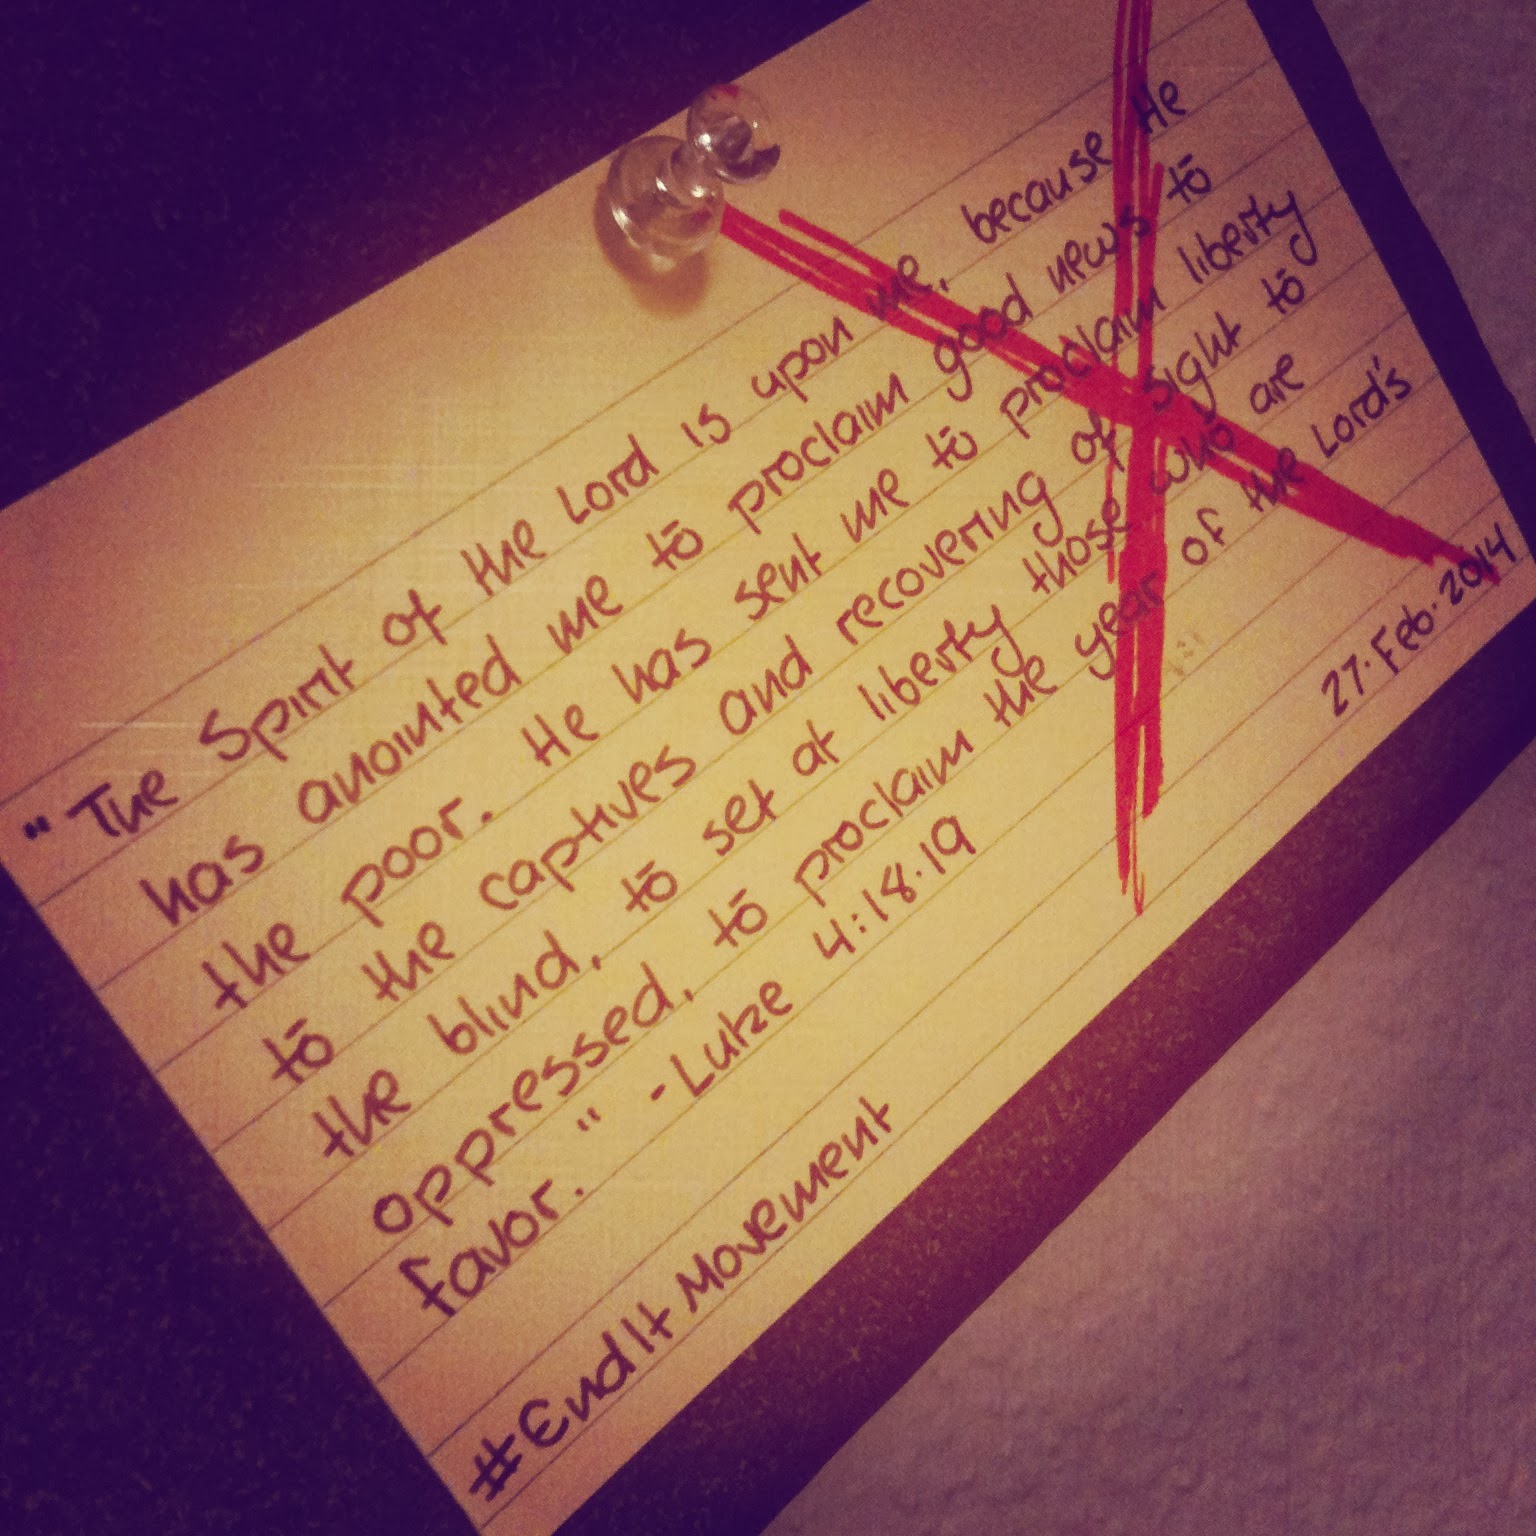 "The Spirit of the Lord is upon me, because He
has anointed me to proclaim good news to
the poor. He has sent me to proclaim liberty
to the captives and recovering of sight to
the blind, to set at liberty those who are
oppressed, to proclaim the year of the Lord's
favor." -Luke 4:18-19
27.Feb.2014
#EndIt Movement